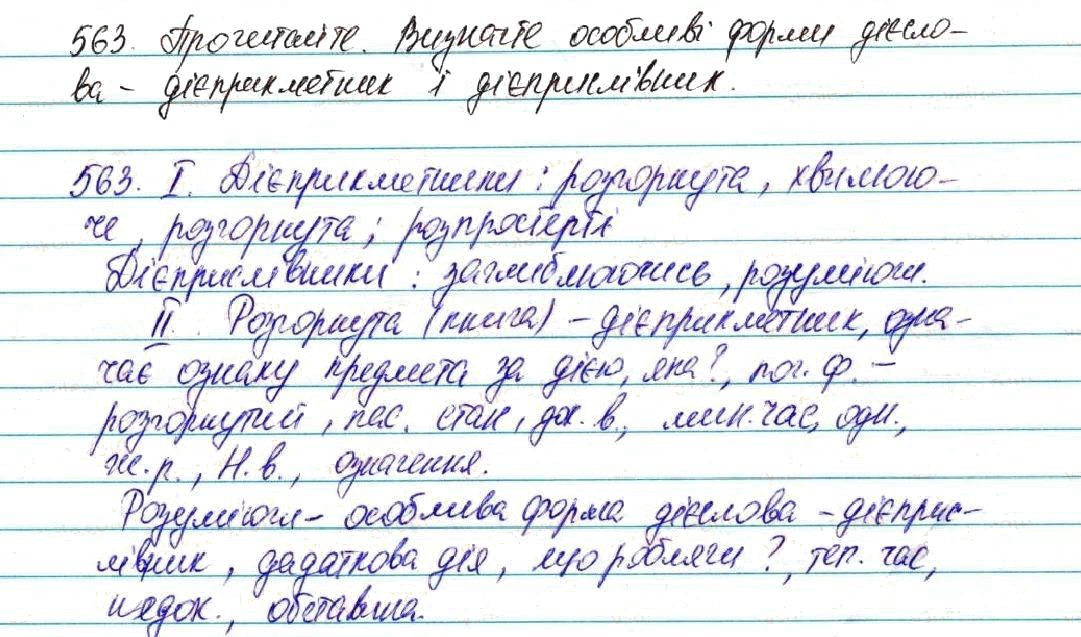 563. Прочитайте. Визначте особливі форми дієсло-
ва - дієприкметник і дієприслівник.
563. І. Дієприкметники: розгорнута, хвилюю-
че, розгорнута; розпростерті
Дієприслівники: заглиблюючись, розуміючи.
ІІ. Розгорнута (книга) - дієприкметник, озна-
чає ознаку предмета за дією, яка?, поч. ф. -
розгорнутий, пас. стан, док. в., мин. час, одн.,
ж.р., Н.в., означення.
Розуміючи - особлива форма дієслова - дієприс-
лівник, додаткова дія, що роблячи?, теп. час,
недок., обставина.